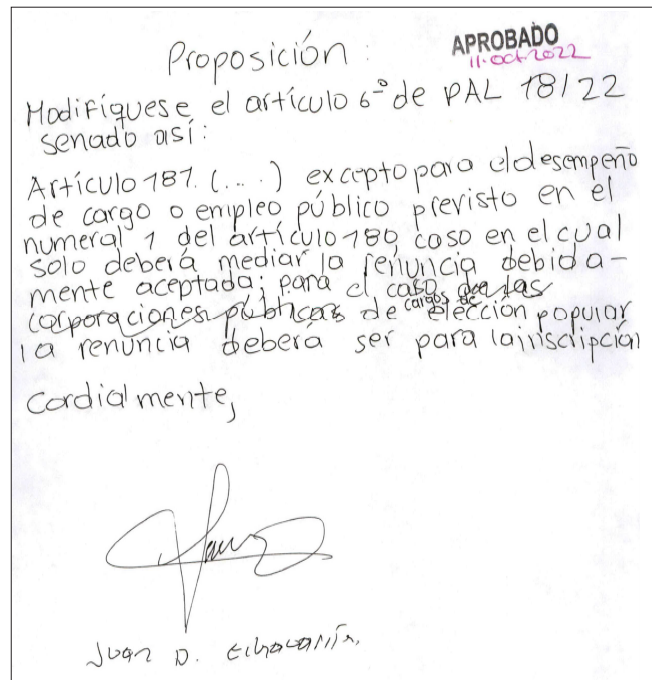 Proposición:
APROBADO
11-oct-2022
Modifíquese el artículo 6º de PAL 18/22
senado así:
Artículo 181. (....) excepto para el desempeño
de cargo o empleo público previsto en el
numeral 1 del artículo 180, caso en el cual
solo deberá mediar la renuncia debida-
mente aceptada; para el caso de las
corporaciones públicas de cargos de elección popular
la renuncia deberá ser para la inscripción
Cordialmente,
Juan D. Echavarría.